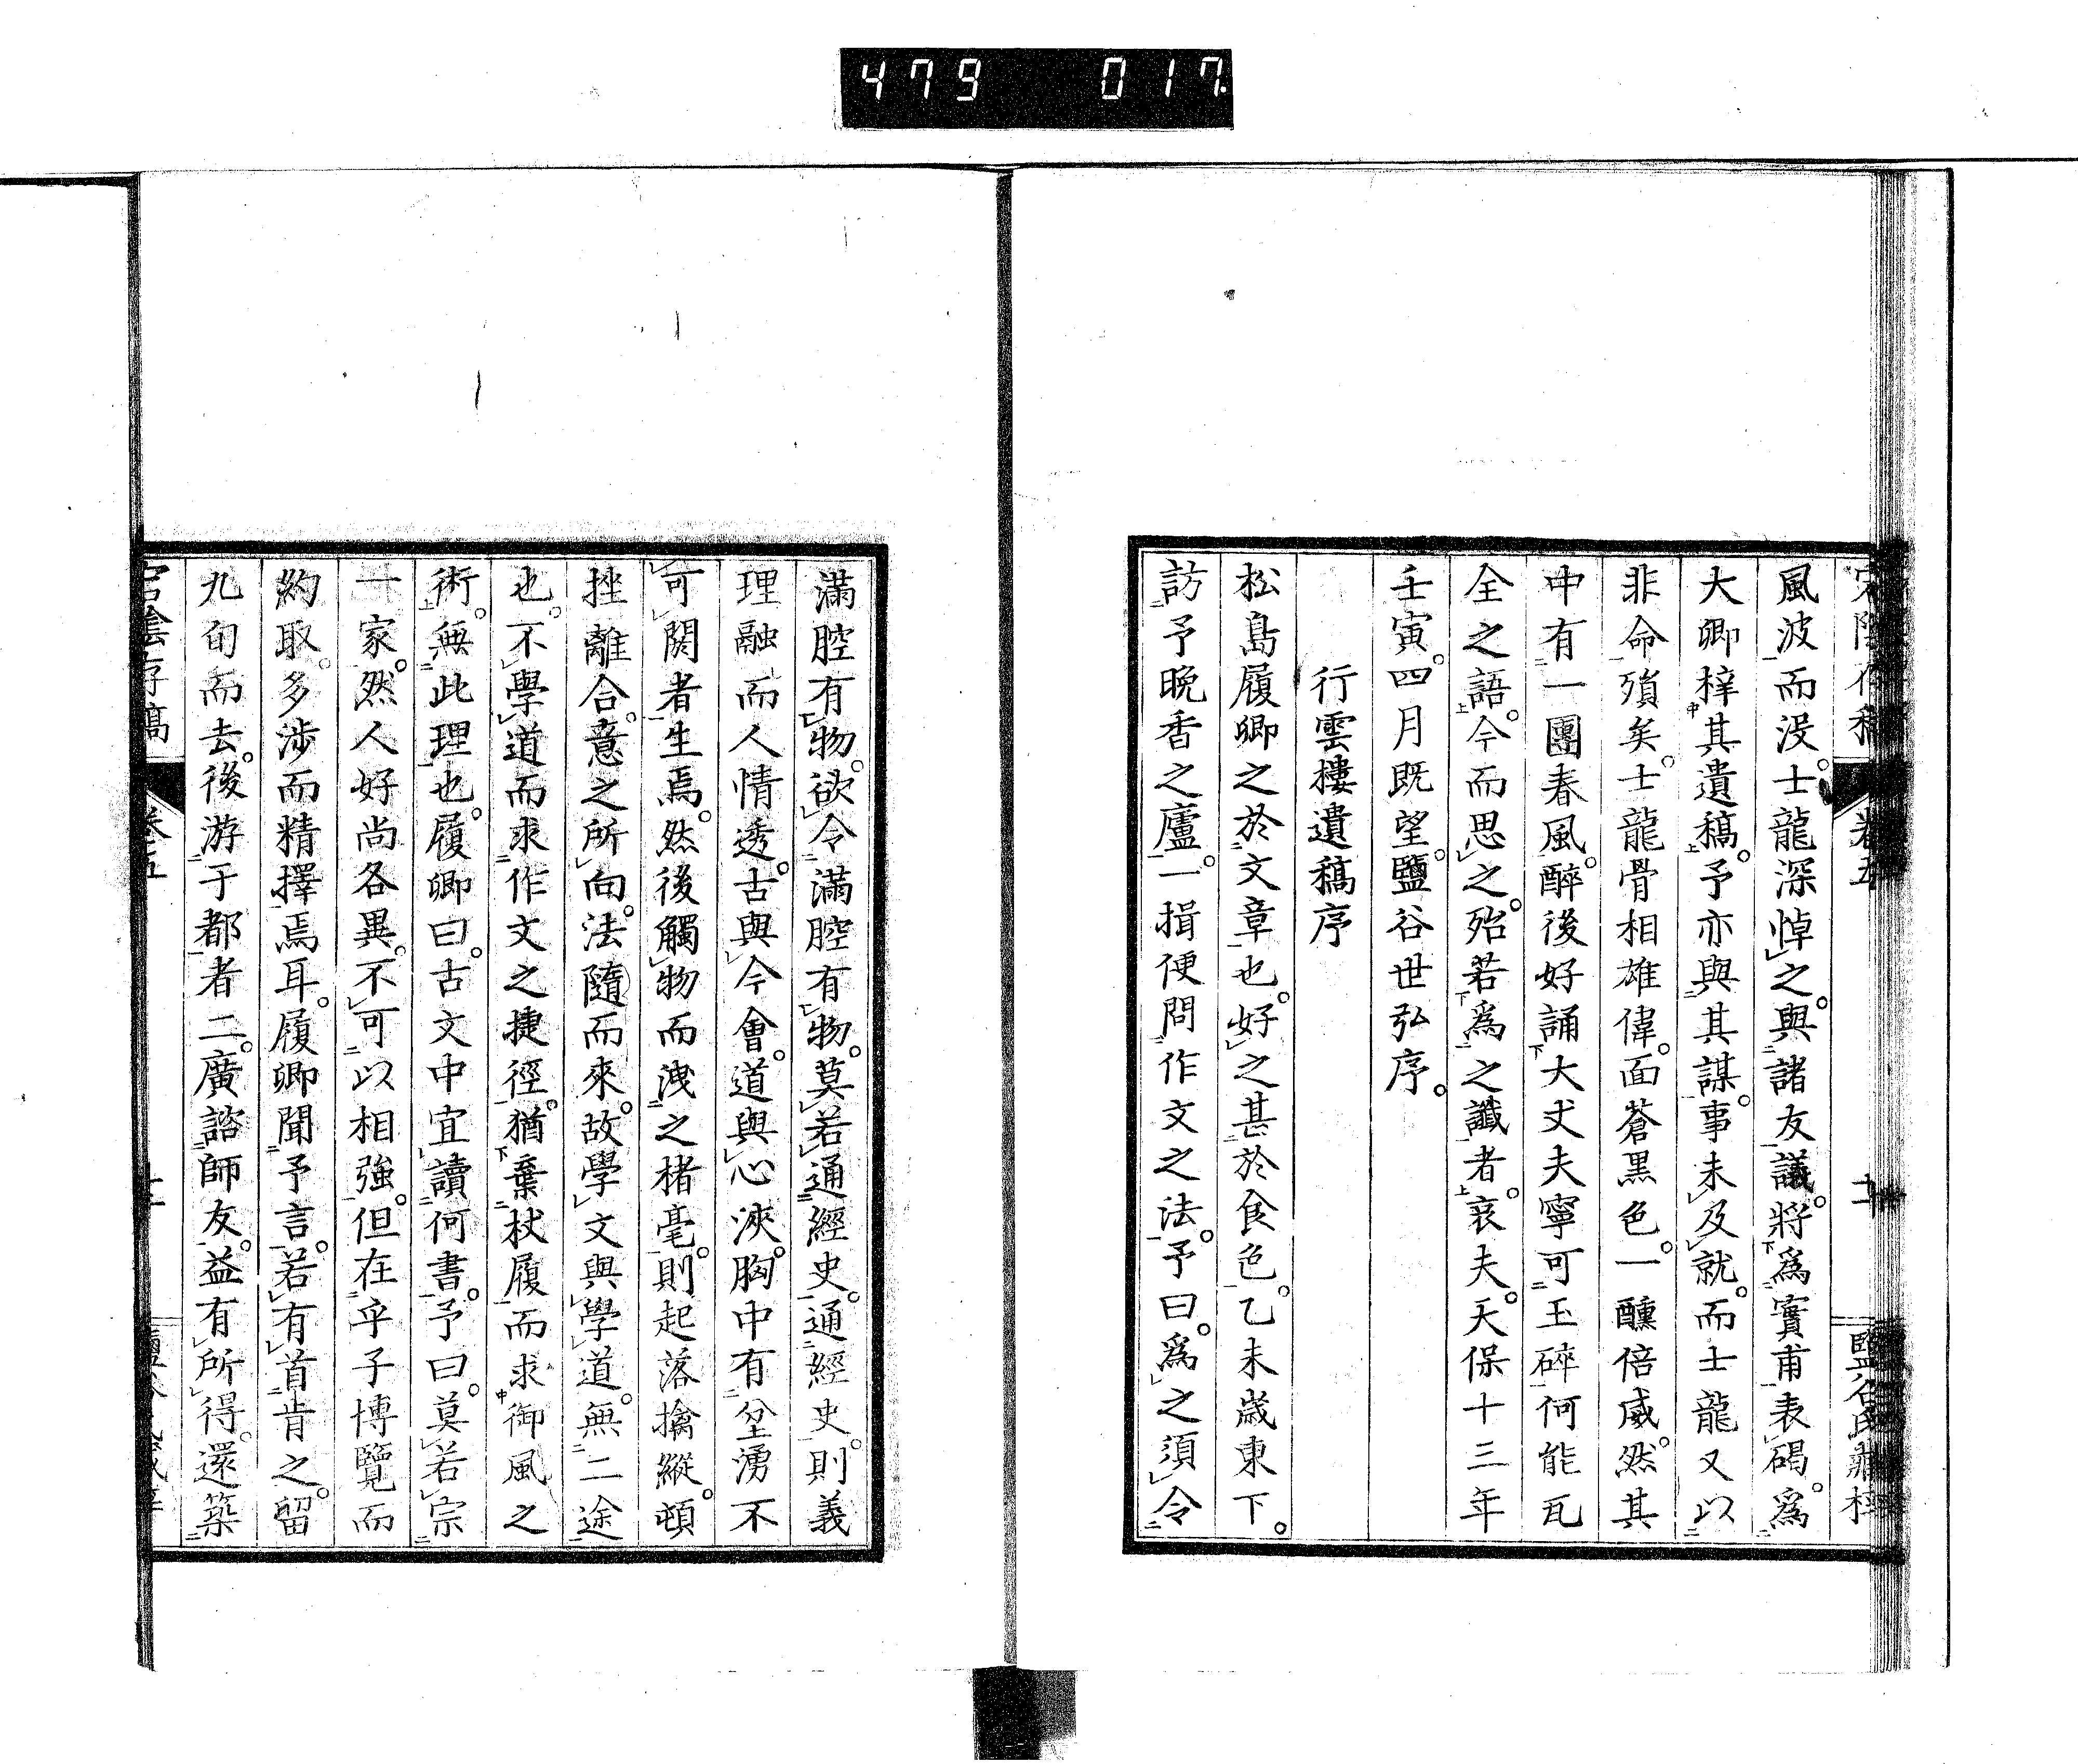 479 017
風波而沒。士龍深悼之。與諸友議。將為實甫表碣。為
大卿梓其遺稿。予亦與其謀。事未及就。而士龍又以
非命殞矣。士龍骨相雄偉。面蒼黑色。一醺倍威。然其
中有一團春風。醉後好誦大丈夫寧可玉碎何能瓦
全之語。今而思之。殆若為之讖者。哀夫。天保十三年
壬寅。四月既望。鹽谷世弘序。
行雲樓遺稿序
松島履卿之於文章也。好之甚於食色。乙未歲東下。
訪予晚香之廬。一揖便問作文之法。予曰。為之須令
滿腔有物。欲令滿腔有物。莫若通經史。通經史。則義
理融而人情透。古與今會。道與心浹。胸中有坌湧不
可閼者生焉。然後觸物而洩之楮毫。則起落擒縱。頓
挫離合。意之所向。法隨而來。故學文與學道。無二途
也。不學道而求作文之捷徑。猶棄杖履而求御風之
術。無此理也。履卿曰。古文中宜讀何書。予曰。莫若宗
一家。然人好尚各異。不可以相強。但在乎子博覽而
約取。多涉而精擇焉耳。履卿聞予言。若有首肯之。留
九旬而去。後游于都者二。廣諮師友。益有所得。還築
宕陰存稿 卷五